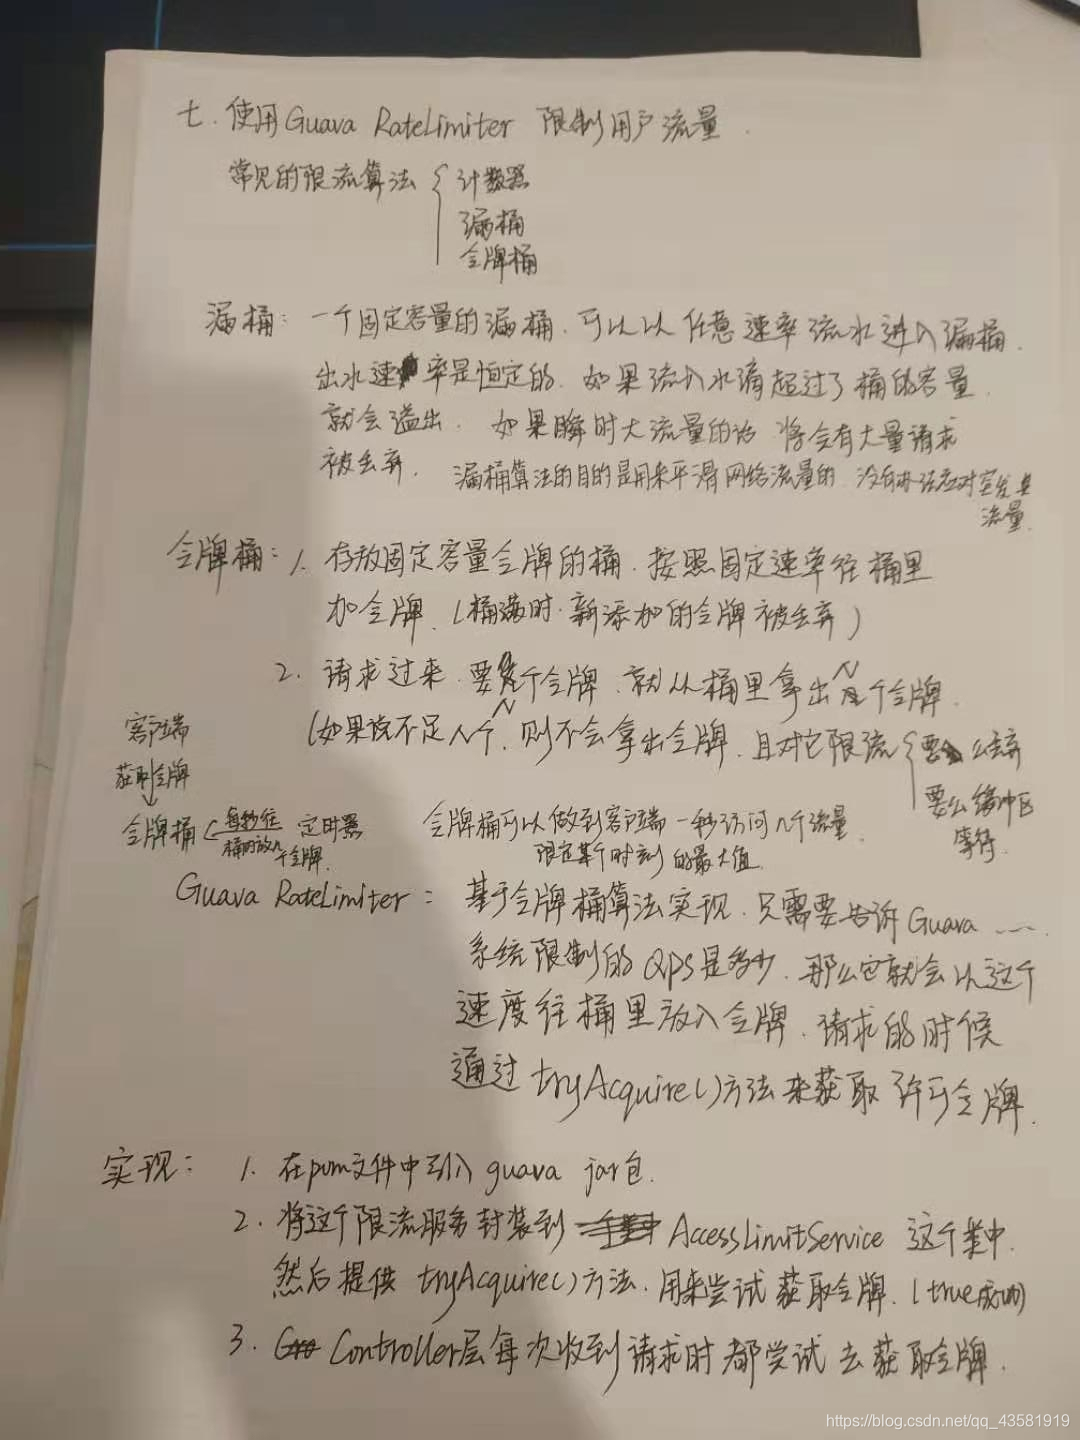 七. 使用Guava RateLimiter 限制用户流量.
常见的限流算法 { 计数器
漏桶
令牌桶
漏桶: 一个固定容量的漏桶. 可以以任意速率流水进入漏桶.
出水速率是恒定的. 如果流入水滴超过了桶的容量.
就会溢出. 如果瞬时大流量的话 将会有大量请求
被丢弃. 漏桶算法的目的是用来平滑网络流量的. 没有办法应对突发
流量.
令牌桶: 1. 存放固定容量令牌的桶. 按照固定速率往桶里
加令牌. (桶满时. 新添加的令牌被丢弃)
2. 请求过来. 要N个令牌. 就从桶里拿出N个令牌.
(如果说不足N个. 则不会拿出令牌. 且对它限流 { 要么丢弃
要么缓冲区
等待.
客户端
获取令牌
令牌桶 每秒往 定时器
桶内放几个令牌.
令牌桶可以做到客户端一秒访问几个流量.
限定某个时刻的最大值.
Guava RateLimiter: 基于令牌桶算法实现. 只需要告诉Guava ....
系统限制的QPS是多少. 那么它就会以这个
速度往桶里放入令牌. 请求的时候
通过 tryAcquire()方法来获取许可令牌.
实现: 1. 在pom文件中引入 guava jar包.
2. 将这个限流服务封装到 AccessLimitService 这个类中.
然后提供 tryAcquire()方法. 用来尝试获取令牌. (true成功)
3. Controller层每次收到请求时都尝试去获取令牌.
https://blog.csdn.net/qq_43581919